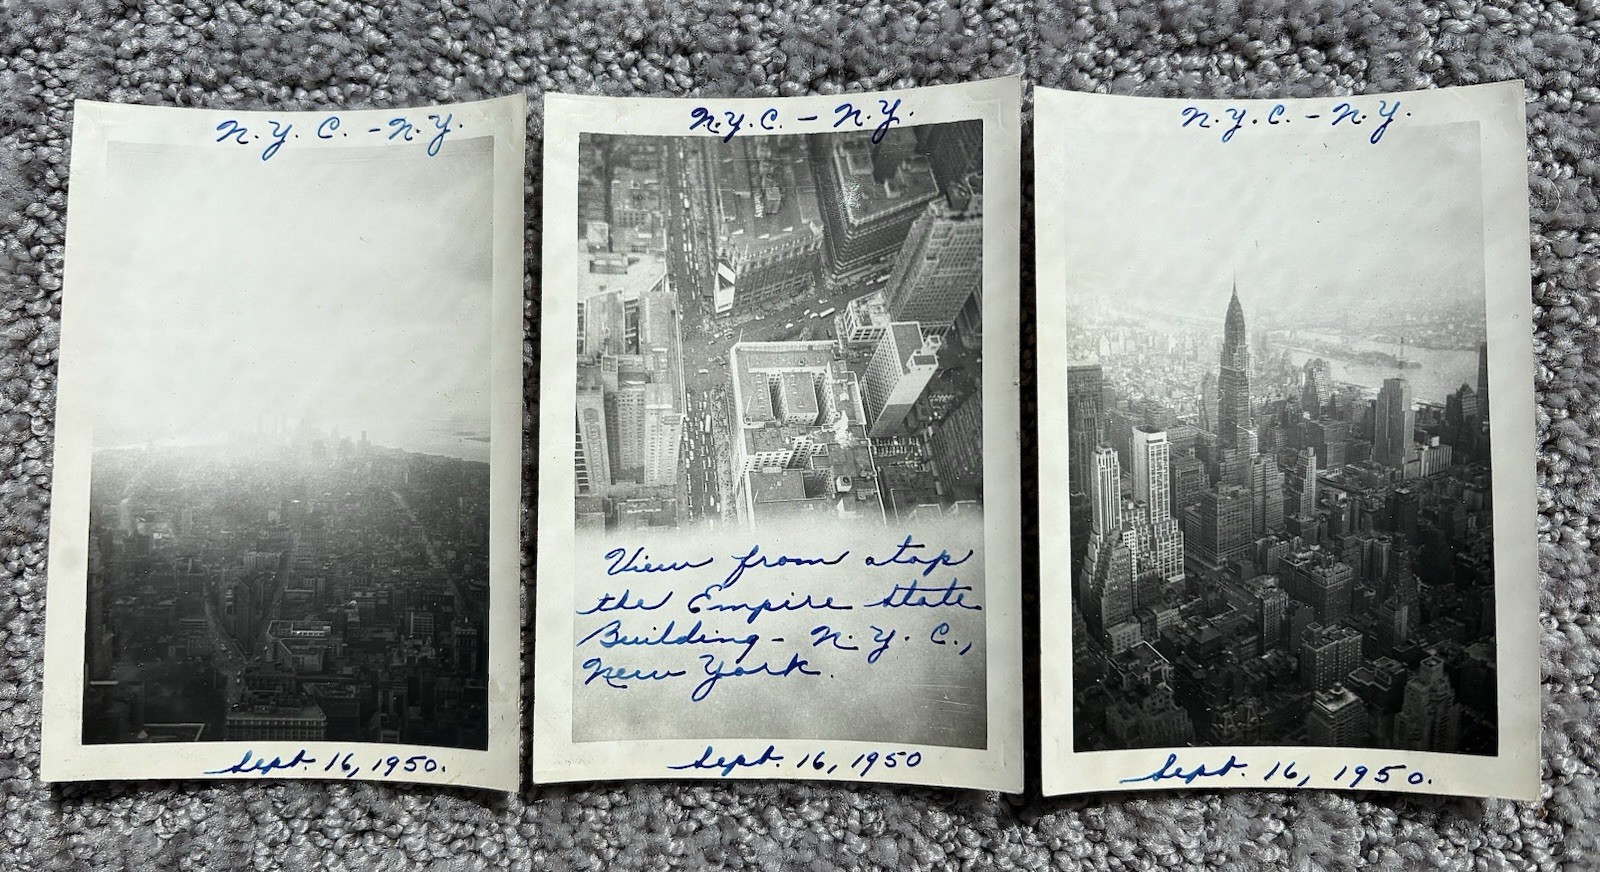 N.Y.C. - N.Y.
Sept. 16, 1950.
N.Y.C. - N.Y.
View from atop
the Empire State
Building - N.Y.C.,
New York.
Sept. 16, 1950
N.Y.C. - N.Y.
Sept. 16, 1950.